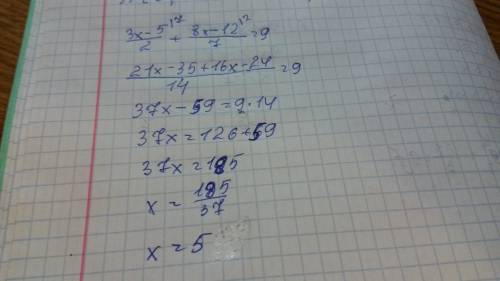 (3x-5)/2 ^(7 + (8x-12)/7 ^(2 = 9
(21x-35+16x-24)/14 = 9
37x-59=9·14
37x=126+59
37x=185
x = 185/37
x = 5